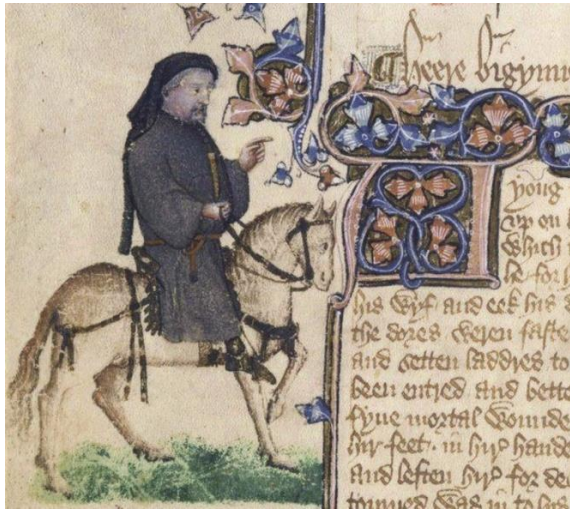 Heere bigynn
A yong
vp on
Which
he for h
his wyf and eek his d
the dores weren faste
and setten laddres to
been entred and bette
fyue mortal wounde
hir feet. in hir hande
And leften hir for dee
torned was in to his